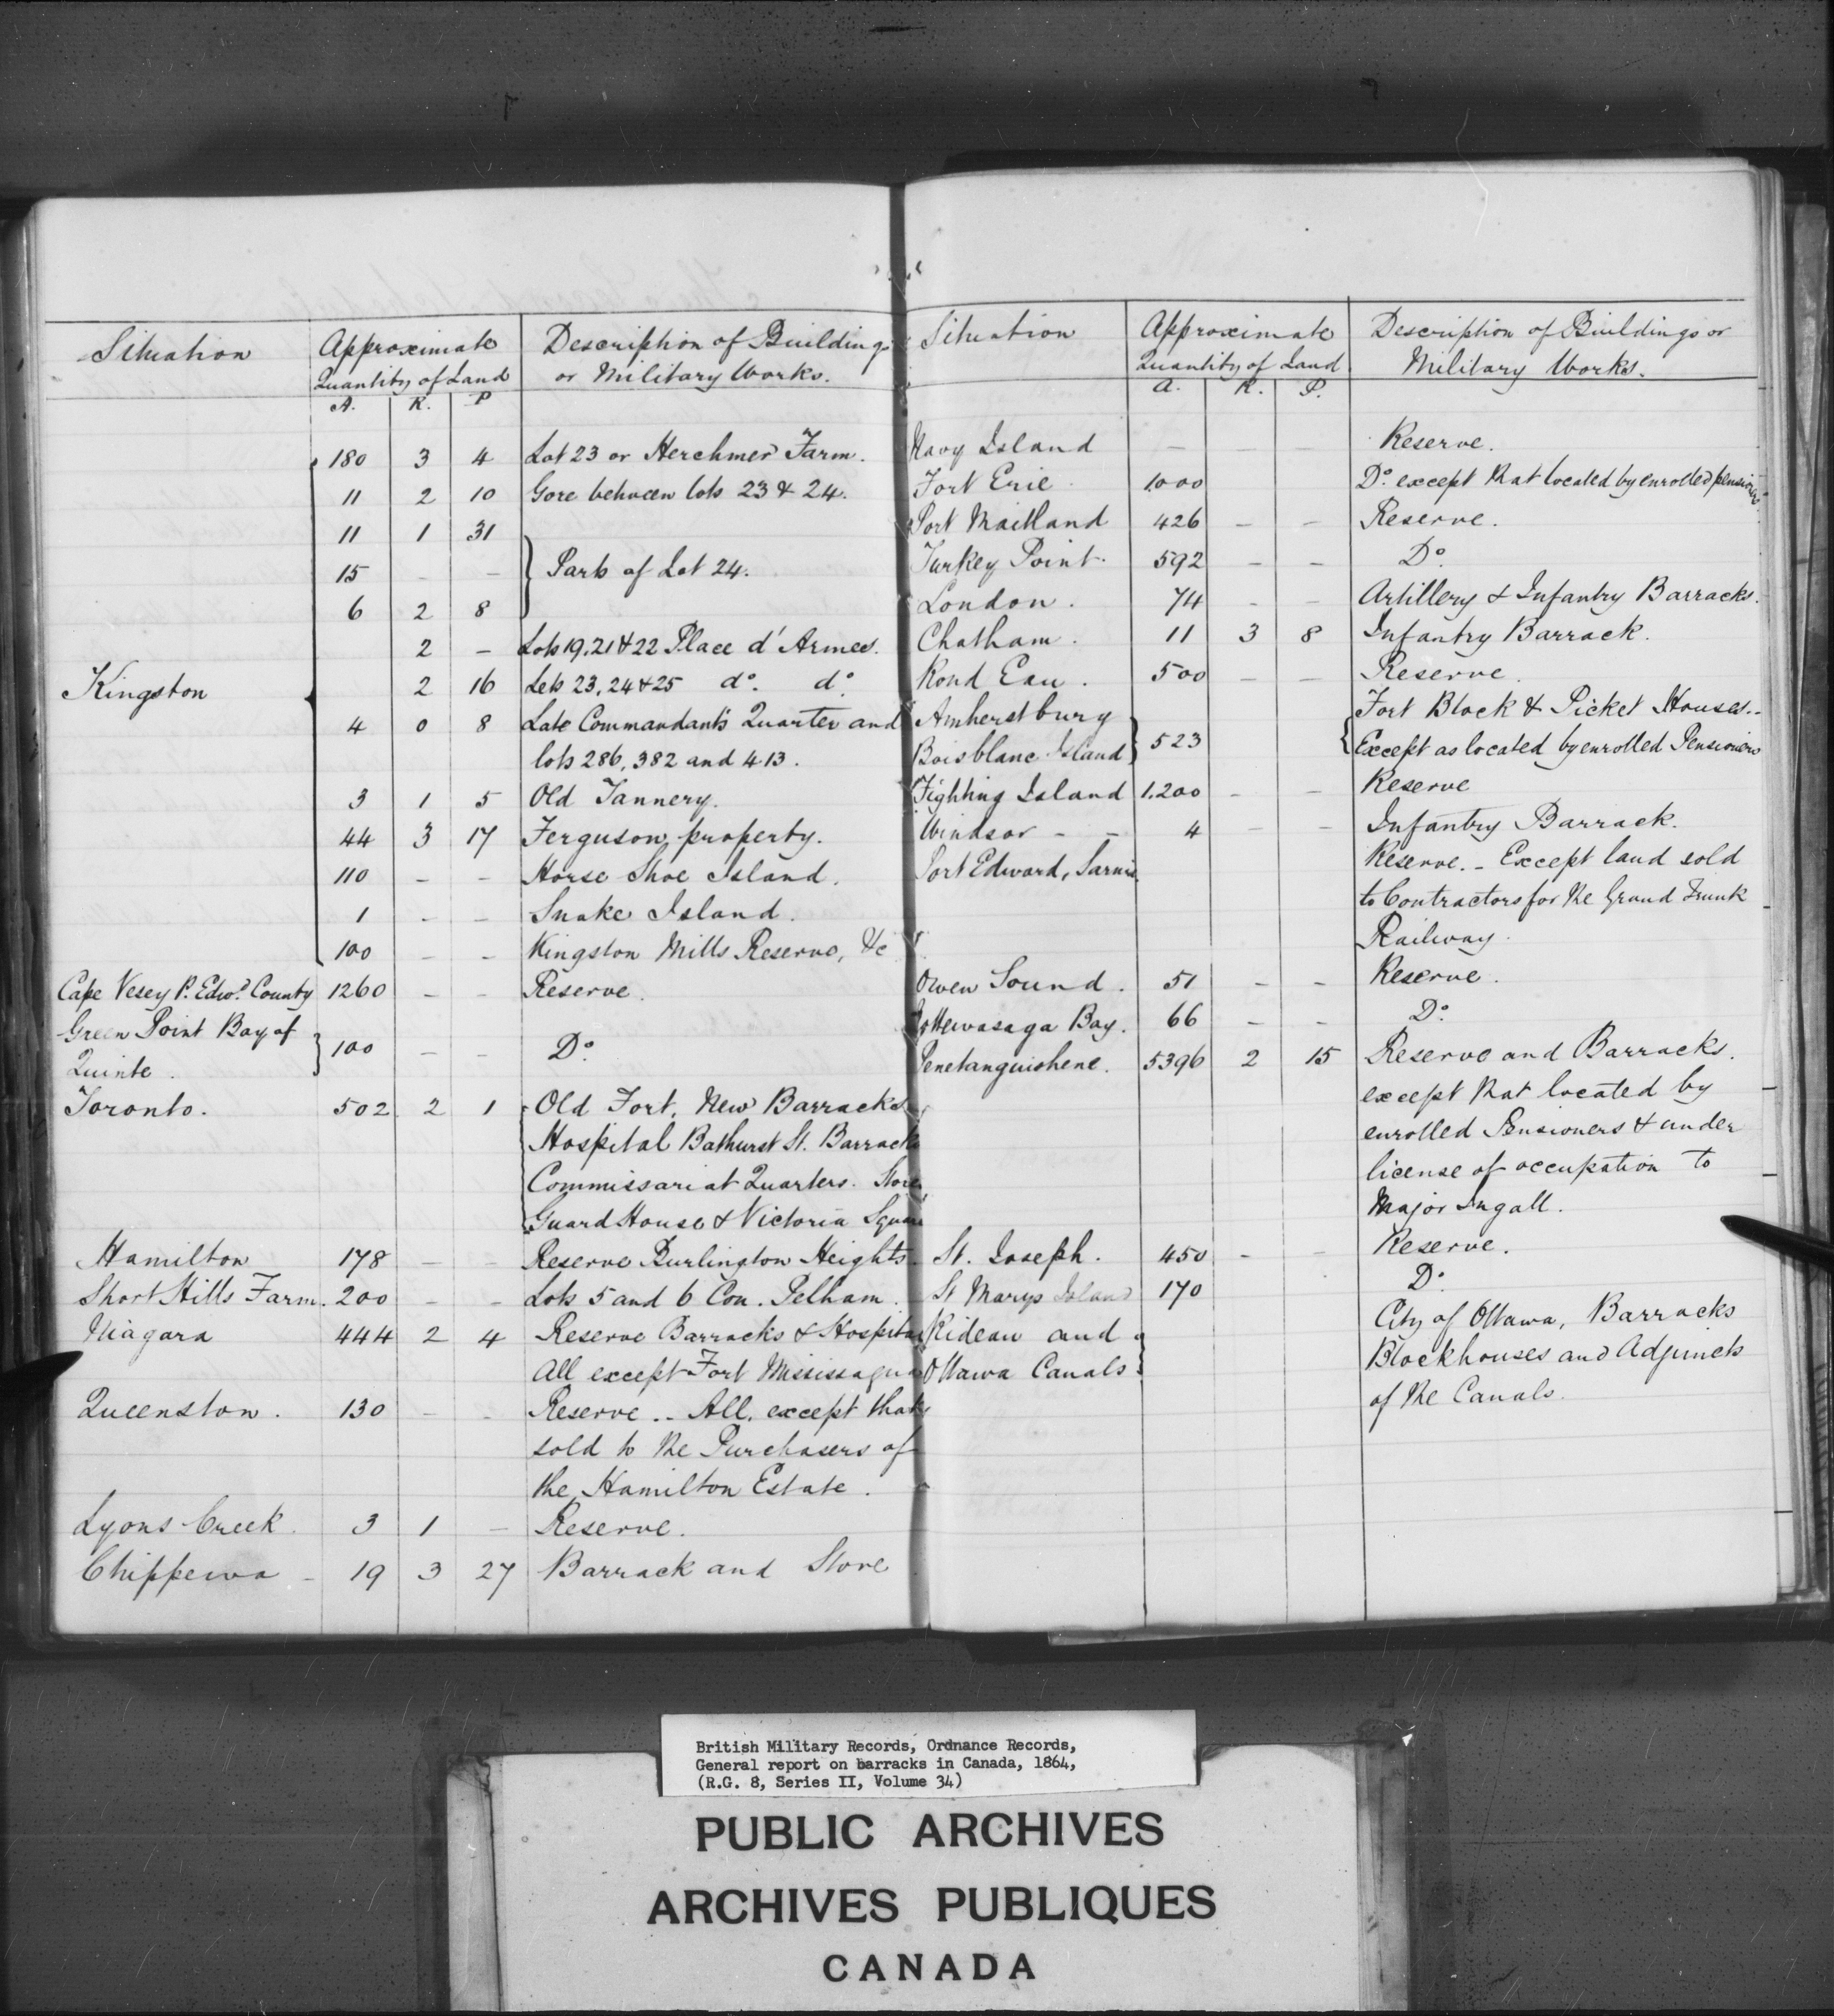 Situation Approximate Quantity of Land Description of Buildings or Military Works.
A. R. P
180 3 4 Lot 23 or Herchmer Farm.
11 2 10 Gore between lots 23 & 24.
11 1 31
15 - - Parts of Lot 24.
6 2 8
2 - Lots 19, 21 & 22 Place d'Armes.
Kingston 2 16 Lots 23, 24 & 25 do. do.
4 0 8 Late Commandant's Quarter and
lots 286, 382 and 413.
3 1 5 Old Tannery.
44 3 17 Ferguson property.
110 - - Horse Shoe Island.
1 - - Snake Island.
100 - - Kingston Mills Reserve, &c
Cape Vesey P. Edwd. County 1260 - - Reserve.
Green Point Bay of
Quinte. 100 - - Do.
Toronto. 502 2 1 Old Fort, New Barracks
Hospital Bathurst St. Barracks
Commissariat Quarters. Store
Guard House & Victoria Square
Hamilton 178 - - Reserve Burlington Heights.
Short Hills Farm. 200 - - Lots 5 and 6 Con. Pelham.
Niagara 444 2 4 Reserve Barracks & Hospital
All except Fort Mississagua
Queenston. 130 - - Reserve .. All, except that
sold to the Purchasers of
the Hamilton Estate.
Lyons Creek. 3 1 - Reserve.
Chippewa - 19 3 27 Barrack and Store
Situation Approximate Quantity of Land Description of Buildings or Military Works.
A. R. P.
Navy Island - - - Reserve.
Fort Erie. 1000 Do. except that located by enrolled pensioners
Port Maitland 426 - - Reserve.
Turkey Point. 592 - - Do.
London. 74 - - Artillery & Infantry Barracks.
Chatham. 11 3 8 Infantry Barrack.
Rond Eau. 500 - - Reserve.
Amherstburg Fort Block & Picket Houses..
Boisblanc Island 523 Except as located by enrolled Pensioners
Fighting Island 1.200 - - Reserve
Windsor - - 4 - - Infantry Barrack.
Port Edward, Sarnia. Reserve. - Except land sold
to Contractors for the Grand Trunk
Railway.
Owen Sound. 51 - - Reserve.
Nottewasaga Bay. 66 - - Do.
Penetanguishene. 5396 2 15 Reserve and Barracks.
except that located by
enrolled Pensioners & under
license of occupation to
Major Ingall.
St. Joseph. 450 - - Reserve.
St Marys Island 170 Do.
Rideau and City of Ottawa, Barracks
Ottawa Canals. Blockhouses and Adjuncts
of the Canals.
British Military Records, Ordnance Records,
General report on barracks in Canada, 1864,
(R.G. 8, Series II, Volume 34)
PUBLIC ARCHIVES
ARCHIVES PUBLIQUES
CANADA